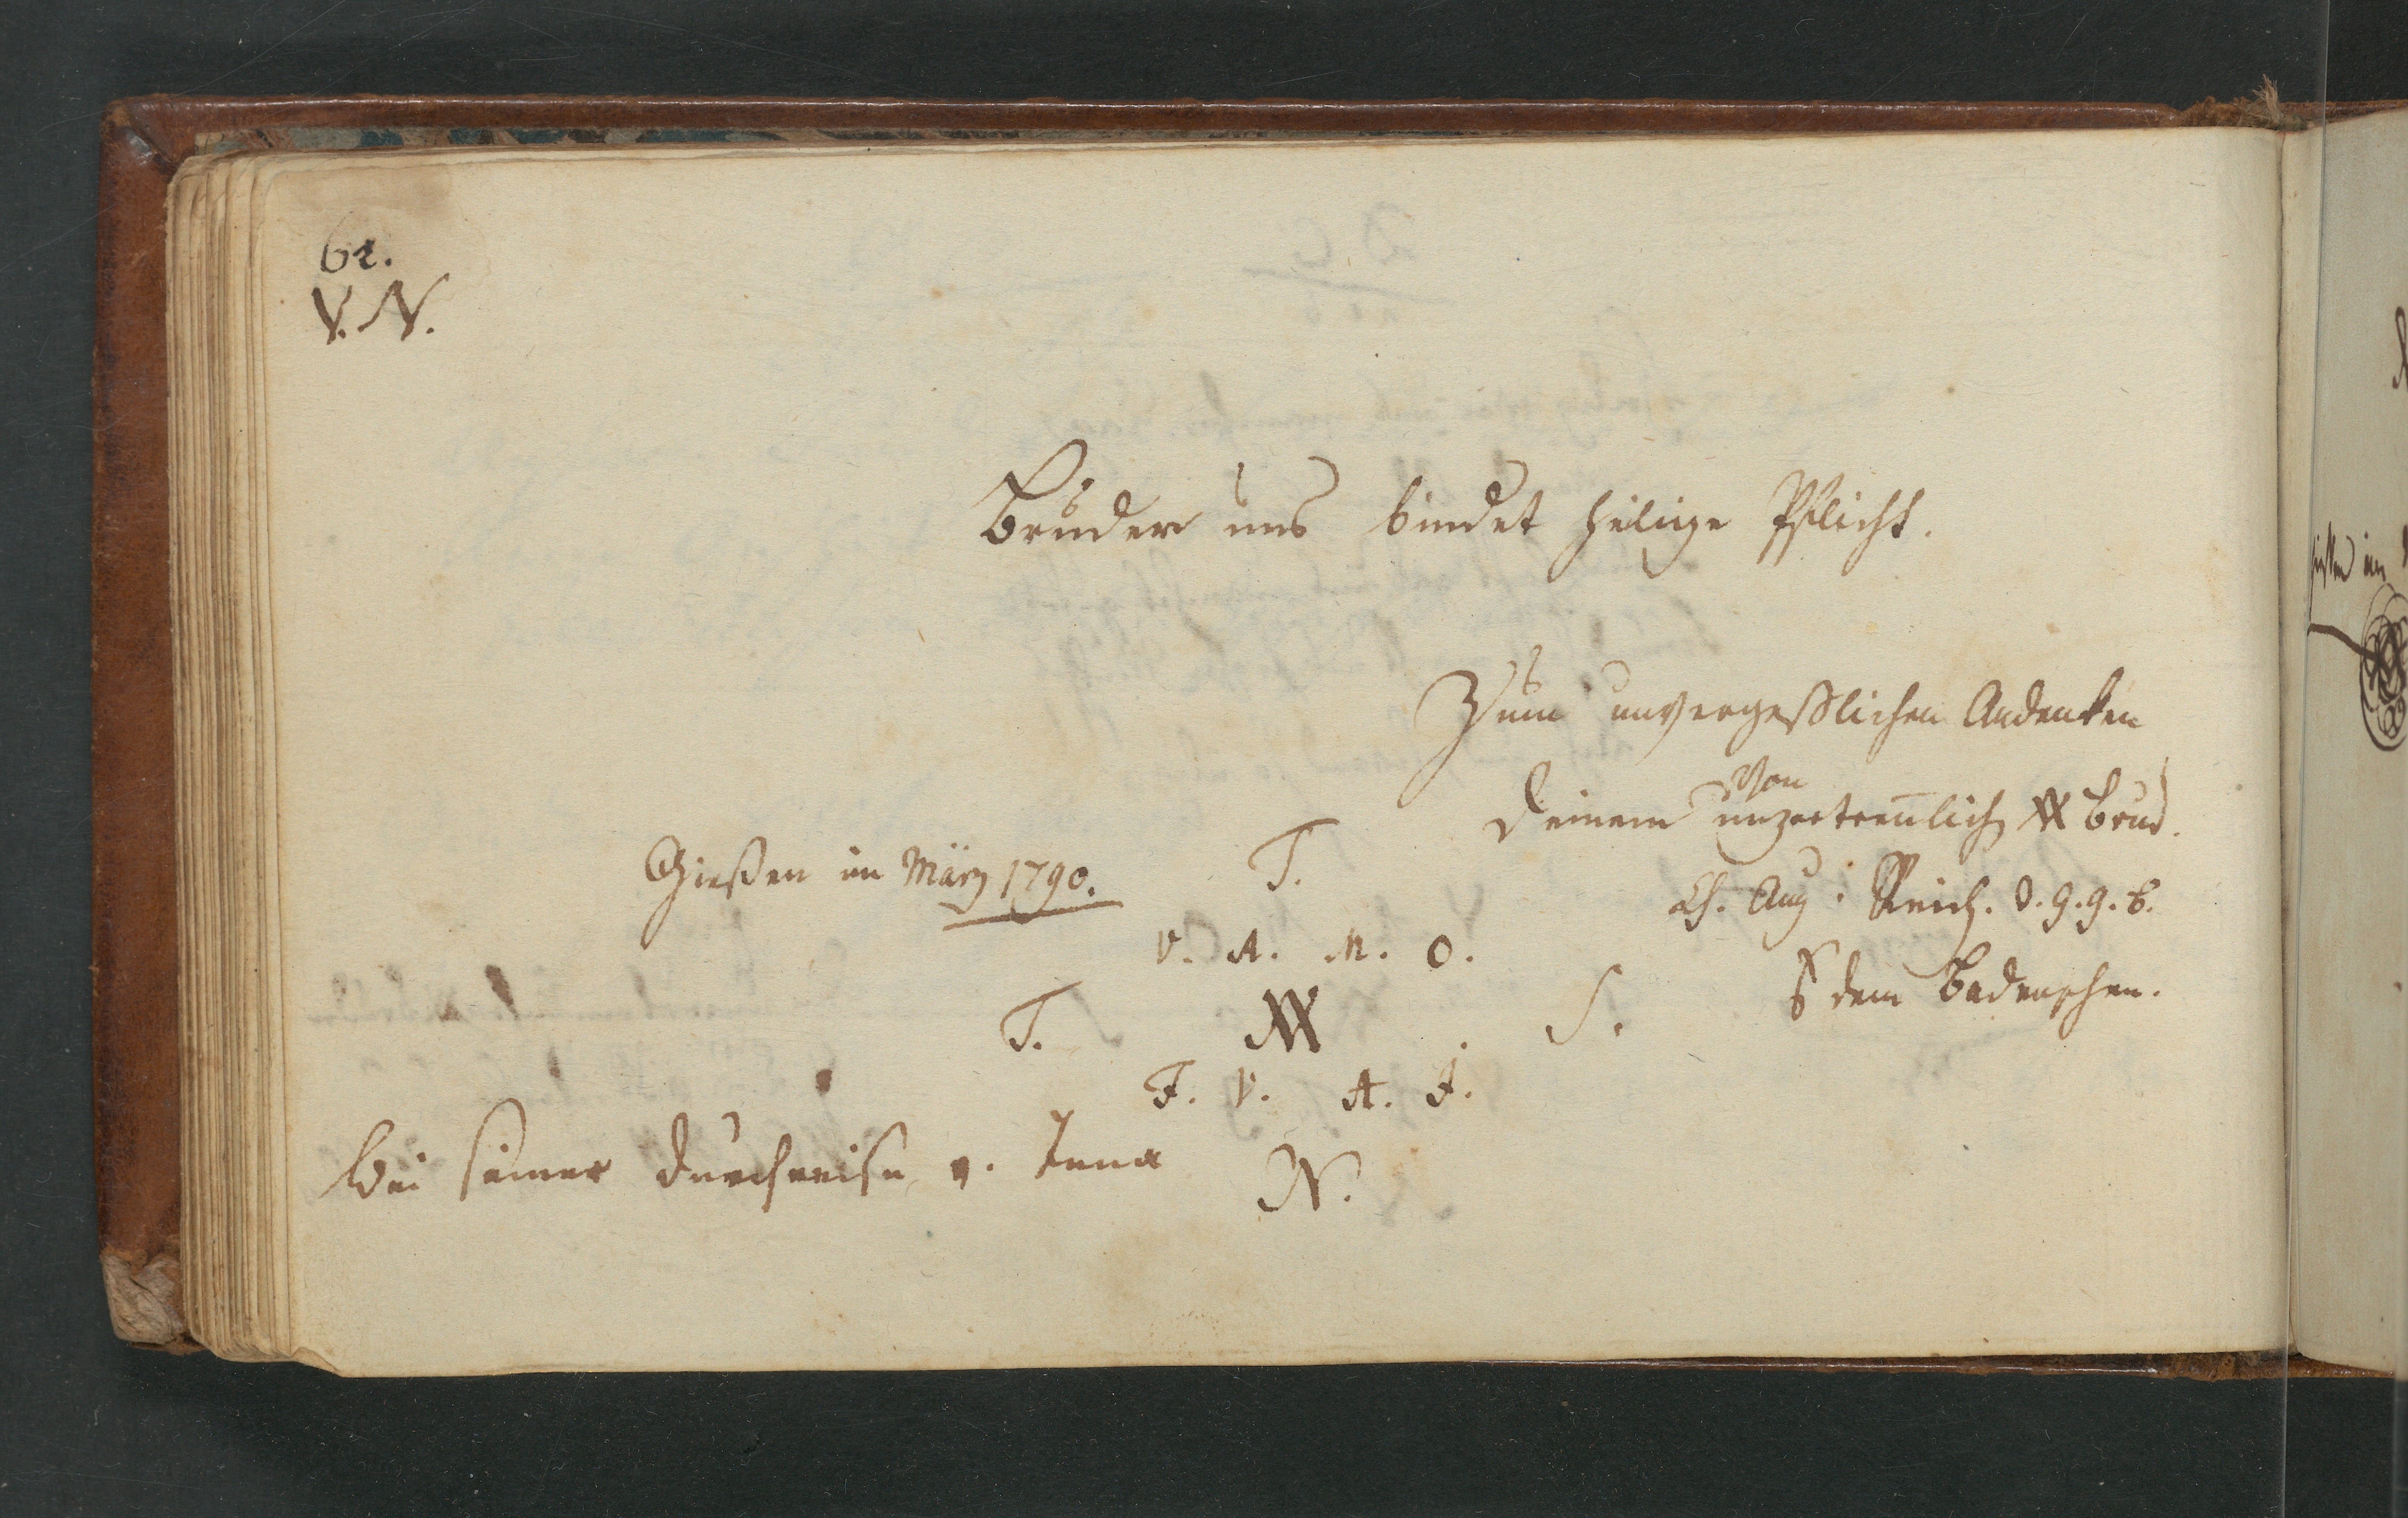 62.
V. N.
Bruder uns bindet heilige Pflicht.
Zum unvergeßlichen Andenken
Von
Deinem unzertrenlich Brud.
Gießen im März 1790.
T.
Ch. Aug. Reich. d. g. g. b.
V. A. M. O.
dem Badenschen.
T.
S.
F. V. A. J.
bei seiner Durchreise v. Jena
N.